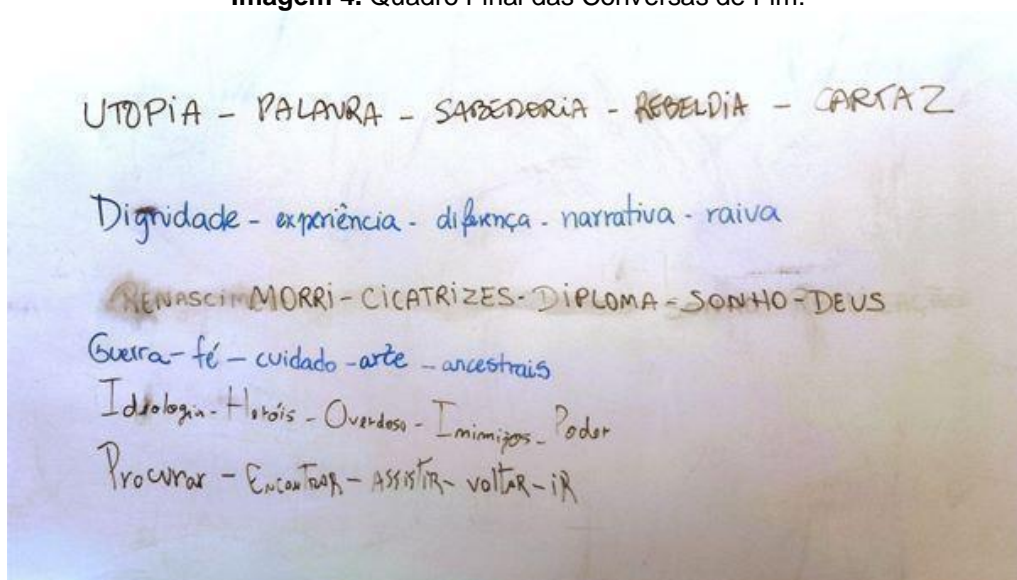 Imagem 4. Quadro Final das Conversas de Fim.
UTOPiA - PALAVRA - SABEDERiA - REBELDiA - CARTAZ
Dignidade - experiência - diferença - narrativa - raiva
RENASCI MORRi - CiCATRIZES - DiPLOMA - SONHO - DEUS
Guerra - fé - cuidado - arte - ancestrais
Ideologia - Heróis - Overdose - Inimigos - Poder
Procurar - ENCONTRAR - ASSISTIR - voltAR - iR